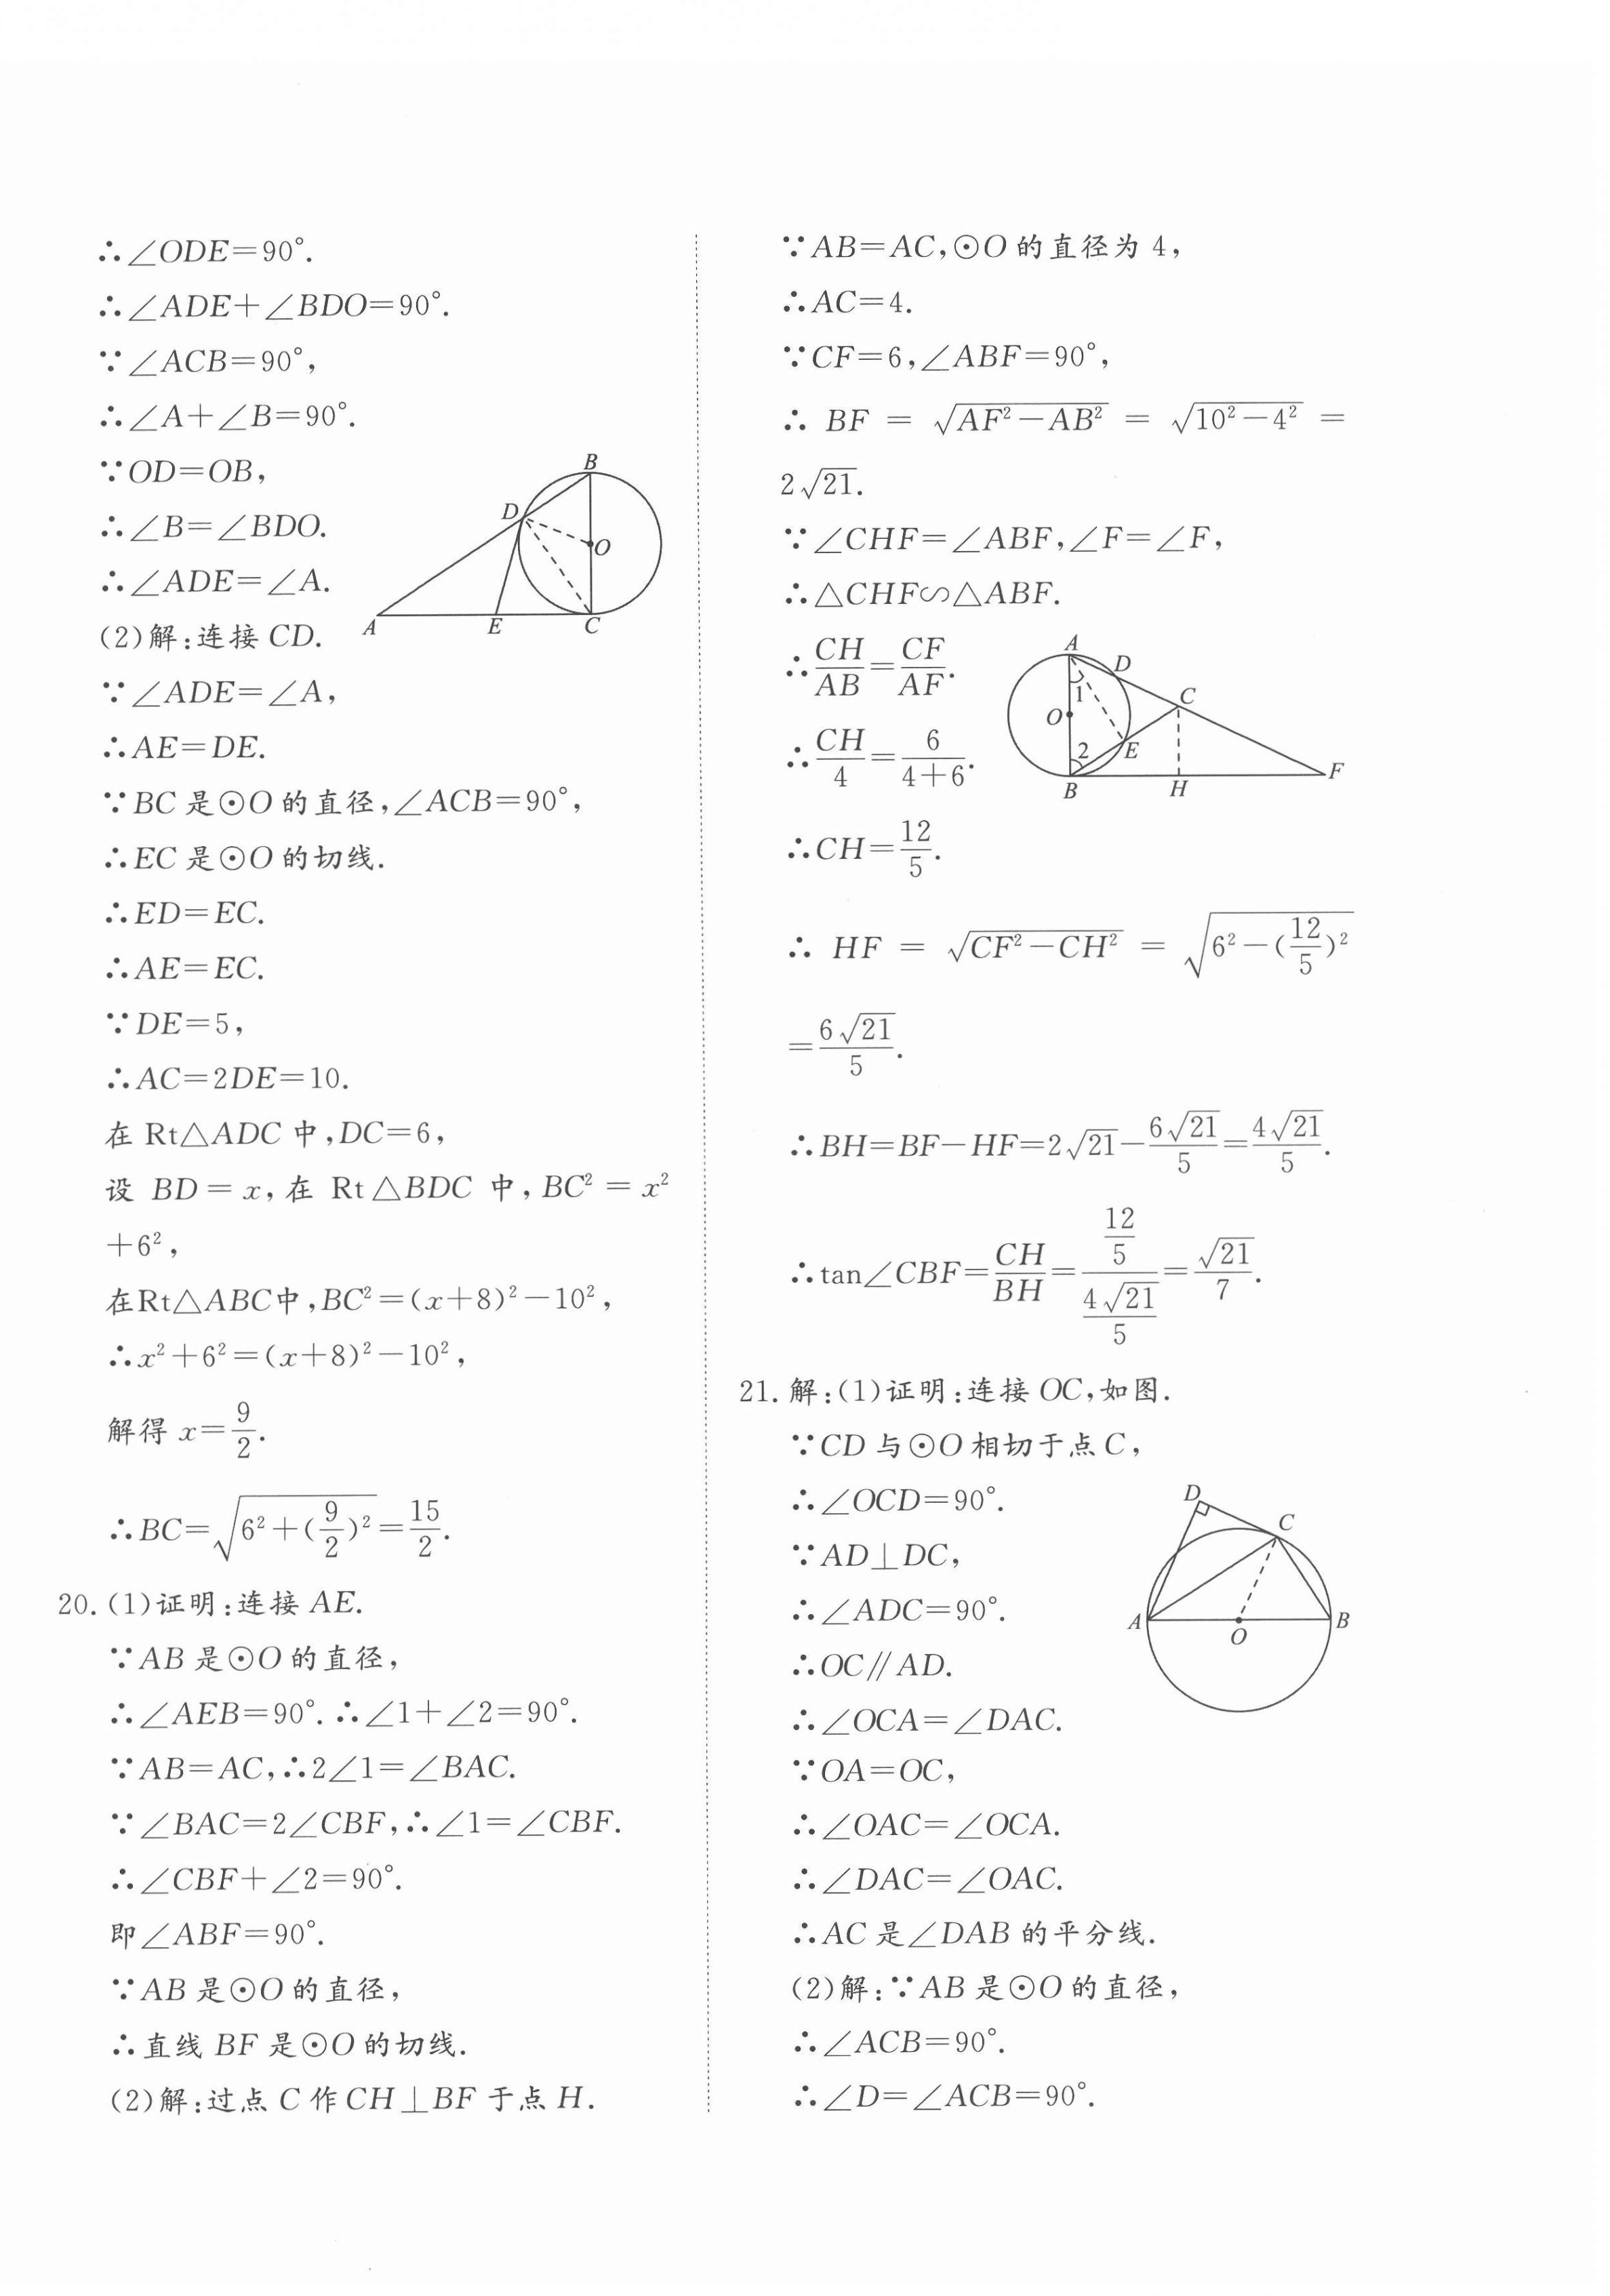 ∴∠ODE=90°.
∴∠ADE+∠BDO=90°.
∵∠ACB=90°,
∴∠A+∠B=90°.
∵OD=OB,
∴∠B=∠BDO.
∴∠ADE=∠A.
(2)解:连接 CD.
B
D
O
A
E
C
∵∠ADE=∠A,
∴AE=DE.
∵BC 是⊙O 的直径,∠ACB=90°,
∴EC 是⊙O 的切线.
∴ED=EC.
∴AE=EC.
∵DE=5,
∴AC=2DE=10.
在 Rt△ADC 中,DC=6,
设 BD=x,在 Rt△BDC 中,BC²=x²
+6²,
在Rt△ABC中,BC²=(x+8)²-10²,
∴x²+6²=(x+8)²-10²,
解得 x=9/2.
∴BC=√(6²+(9/2)²)=15/2.
20.(1)证明:连接 AE.
∵AB 是⊙O 的直径,
∴∠AEB=90°.∴∠1+∠2=90°.
∵AB=AC,∴2∠1=∠BAC.
∵∠BAC=2∠CBF,∴∠1=∠CBF.
∴∠CBF+∠2=90°.
即∠ABF=90°.
∵AB 是⊙O 的直径,
∴直线 BF 是⊙O 的切线.
(2)解:过点 C 作 CH⊥BF 于点 H.
∵AB=AC,⊙O 的直径为 4,
∴AC=4.
∵CF=6,∠ABF=90°,
∴ BF = √(AF²-AB²) = √(10²-4²) =
2√21.
∵∠CHF=∠ABF,∠F=∠F,
∴△CHF∽△ABF.
∴CH/AB=CF/AF.
∴CH/4=6/(4+6).
A
D
1
C
O
2
E
F
B
H
∴CH=12/5.
∴ HF = √(CF²-CH²) = √(6²-(12/5)²)
=6√21/5.
∴BH=BF-HF=2√21-6√21/5=4√21/5.
∴tan∠CBF=CH/BH=(12/5)/(4√21/5)=√21/7.
21.解:(1)证明:连接 OC,如图.
∵CD 与⊙O 相切于点 C,
∴∠OCD=90°.
∵AD⊥DC,
∴∠ADC=90°.
∴OC∥AD.
∴∠OCA=∠DAC.
D
C
A
O
B
∵OA=OC,
∴∠OAC=∠OCA.
∴∠DAC=∠OAC.
∴AC 是∠DAB 的平分线.
(2)解:∵AB 是⊙O 的直径,
∴∠ACB=90°.
∴∠D=∠ACB=90°.